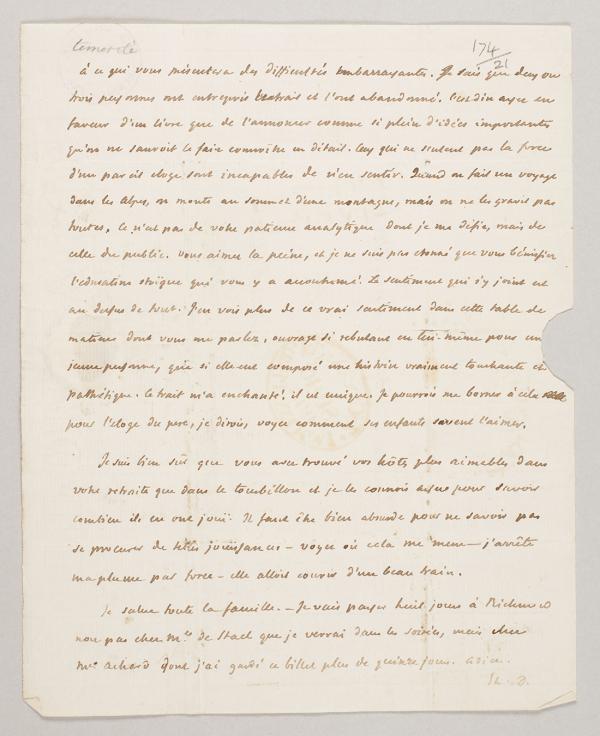 temerité
174/21
à ce qui vous présentera des difficultés embarrassantes. Je sais que deux ou
trois personnes ont entrepris l'extrait et l'ont abandonné. C'est dire assez en
faveur d'un livre que de l'annoncer comme si plein d'idées importantes
qu'on ne sauroit le faire connoitre en détail. Ceux qui ne sentent pas la force
d'un pareil eloge sont incapables de rien sentir. Quand on fait un voyage
dans les Alpes, on monte au sommet d'une montagne, mais on ne les gravit pas
toutes. Ce n'est pas de votre patience analytique dont je me défie, mais de
celle du public. Vous aimez la peine, et je ne suis pas etonné que vous bénissiez
l'education stoïque qui vous y a accoutumé. Le sentiment qui s'y joint est
au dessus de tout. J'en vois plus de ce vrai sentiment dans cette table de
matieres dont vous me parlez, ouvrage si rebutant en lui-même pour une
jeune personne, que si elle eut composé une histoire vraiment touchante et
pathétique. Le trait m'a enchanté, il est unique. Je pourrois me borner à cela
pour l'eloge du pere, je dirois, voyez comment ses enfants savent l'aimer.
Je suis bien sûr que vous avez trouvé vos hôtes plus aimables dans
votre retraite que dans le tourbillon et je les connois assez pour savoir
combien ils en ont joui. Il faut être bien absurde pour ne savoir pas
se procurer de telles jouissances – voyez où cela me mene – j'arrête
ma plume par force – elle alloit courir d'un beau train.
Je salue toute la famille. – Je vais passer huit jours à Richmond
non pas chez Me de Stael que je verrai dans les soirées, mais chez
Mr. Achard dont j'ai gardé ce billet plus de quinze jours. adieu.
Et. D.